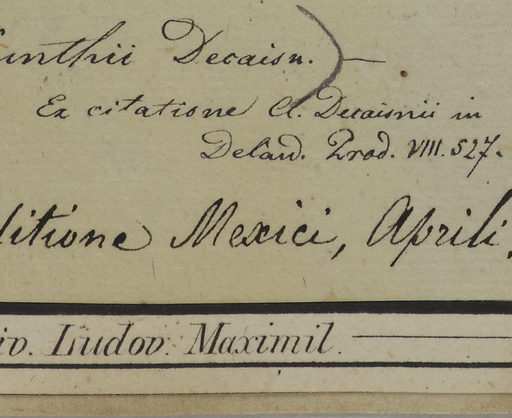 unthii Decaisn.) —
Ex citatione Cl. Decaisnii in
Decand. Prod. VIII. 527.
ditione Mexici, Aprili
iv. Ludov. Maximil. —